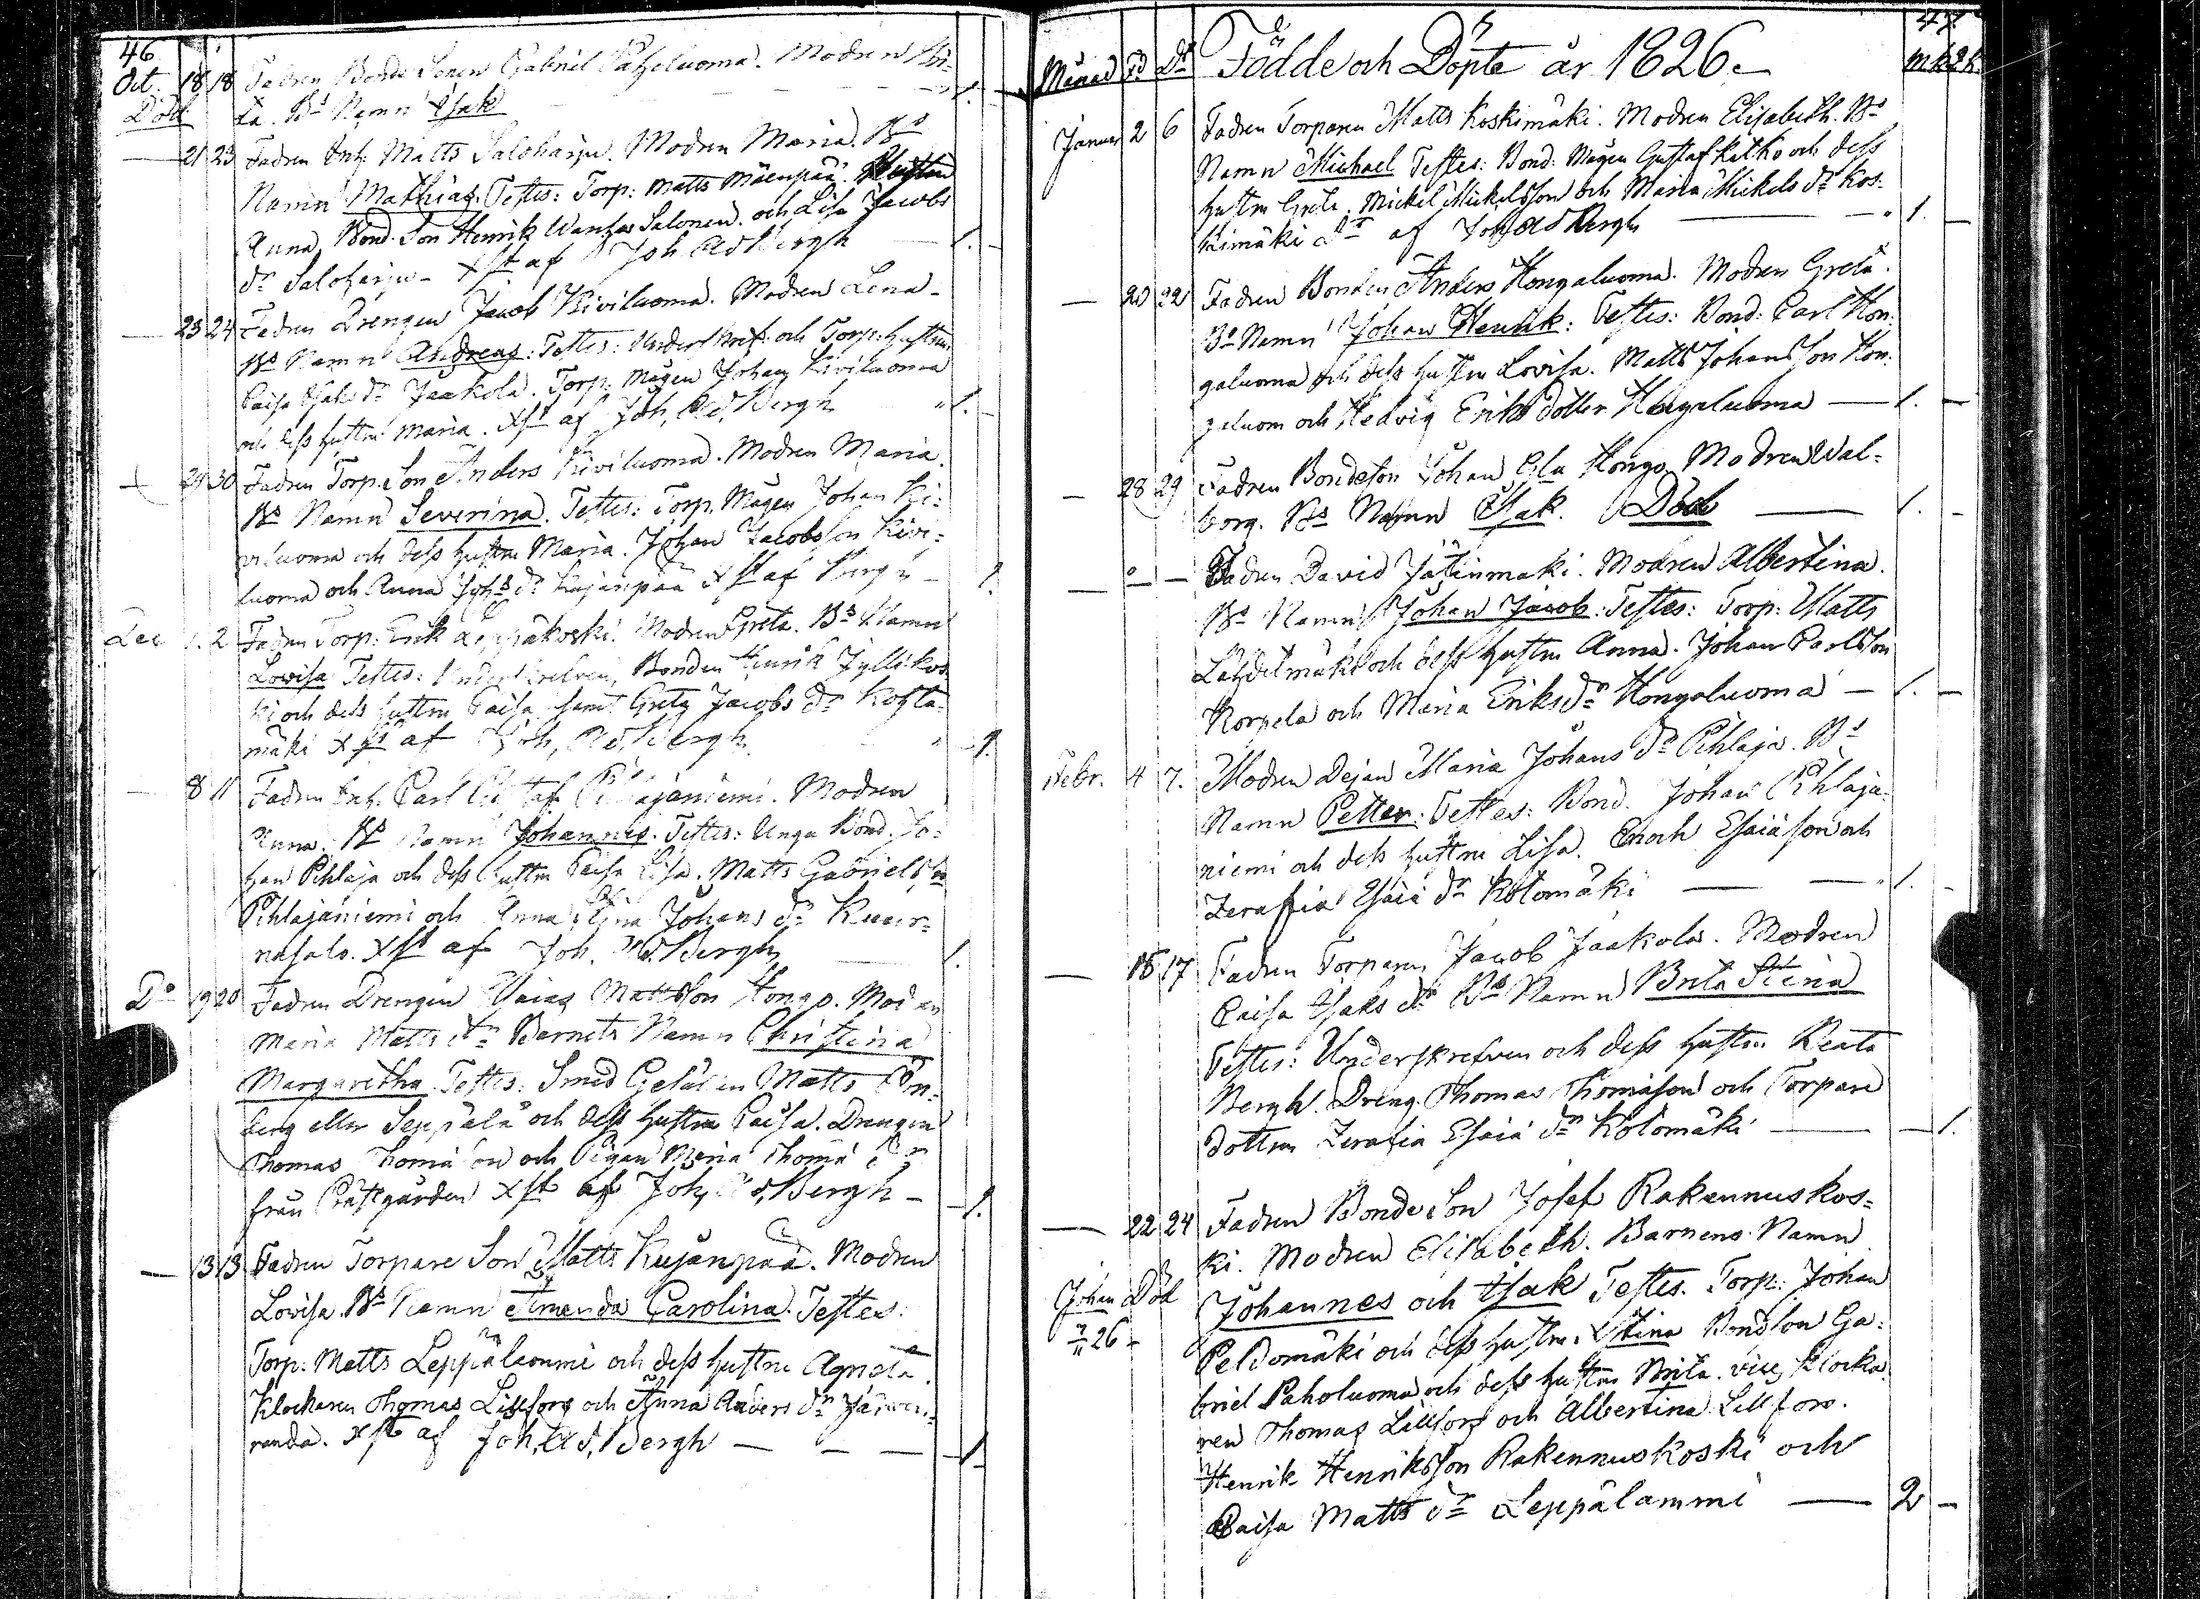 46
Oct. 18 18 Fadren Bonde Sonen Gabriel Pahaluoma. Modren Bri-
Död ta. Bs Namn Isak 1.
21 23 Fadren Inh: Matts Saloharju. Modren Maria. Bs
Namn Mathias. Testes: Torp: Matts Mäenpää. Hustru
Anna, Bond. Son Henrik Wanhas Salonen och Lisa Jacobs
dr Saloharju - Xst af Joh. Ad Bergh 1. -
23 24 Fadren Drengen Jacob Kiviluoma. Modren Lena -
Bs Namn Andreas: Testes: Underskref: och Torp: hustrun
Caisa Isaks dr Jaakola. Torp: Mågen Johan Kiviluoma
och dess hustru Maria. Xst af Joh. Ad. Bergh 1. -
+ 29 30 Fadren Torp. Son Anders Kiviluoma. Modren Maria.
Bs Namn Severina. Testes: Torp. Mågen Johan Ki-
viluoma och dess hustru Maria. Johan Jacobsson Kivi-
luoma och Anna Johs dr Kujanpää Xst af Bergh - 1.
Dec 1. 2 Fadren Torp: Erik Leppäkoski. Modren Greta. Bs Namn
Lovisa Testes: Underskrefven, Bonden Henrik Jyllikos
ki och dess hustru Caisa samt Greta Jacobs dr Kosta-
mäki Xst af Joh. Ad. Bergh 1.
8 11 Fadren Inh. Carl Gustaf Pihlajaniemi. Modren
Anna. Bs Namn Johannes. Testes: Unga Bond. Jo-
han Pihlaja och dess hustru Caisa Lisa. Matts Gabrielsson
Pihlajaniemi och Anna Stina Johans dr Kuur-
nasalo. Xst af Joh. Ad. Bergh 1.
Do 19 20 Fadren Drengen Isaias Mattsson Hongo. Modren
Maria Matts dr Barnets Namn Christina
Margaretha. Testes: Smed Gesällen Matts En-
berg eller Seppälä och dess hustru Caisa. Drengen
Thomas Thomasson och Pigan Maria Thomæ dr
från Prästgården Xst af Joh. Ad. Bergh - 1.
13 13 Fadren Torpare Son Matts Kujanpää. Modren
Lovisa. Bs Namn Amanda Carolina. Testes:
Torp: Matts Leppälammi och dess hustru Agneta.
Klockaren Thomas Lillfors och Anna Anders dr Järven-
randa. Xst af Joh. Ad. Bergh - - - 1.
47
Månad Fd Dt Födde och Döpte år 1826. - mk qk.
Januar 2 6 Fadren Torparen Matts Koskimäki. Modren Elisabeth. Bs
Namn Michael Testes: Bond: Mågen Gustaf Kitko och dess
hustru Greta. Mickel Mickelsson och Maria Mickels dr Kos-
kimäki Dr af Joh Ad Bergh 1. -
20 22 Fadren Bonden Anders Hongaluoma. Modren Greta.
Bs Namn Johan Henrik: Testes: Bond: Carl Hon-
galuoma och dess hustru Lovisa. Matts Johansson Hon-
galuom och Hedvig Eriks dotter Hongaluoma 1. -
28 29 Fadren Bondeson Johan Yla Hongo Modren Wal-
borg. Bs Namn Isak. Död 1. -
Fadren David Jätinmäki. Modren Albertina.
Bs Namn Johan Jacob: Testes: Torp: Matts
Lähdetmäki och dess hustru Anna. Johan Carlsson
Korpela och Maria Eriks dr Hongaluoma - 1. -
Febr. 4 7. Modren Dejan Maria Johans dr Pihlaja. Bs
Namn Petter. Testes: Bond. Johan Pihlaja-
niemi och dess hustru Lisa. Enoch Esaiæson och
Zerafia Esaiæ dr Kotomäki 1. -
16 17 Fadren Torparen Jacob Jaakola. Modren
Caisa Isaks dr Bs Namn Brita Stina
Testes: Underskrefven och dess hustru Beata
Bergh. Dreng. Thomas Thomason och Torpare
dottren Zerafia Esaiæ dr Kotomäki 1.
22 24 Fadren Bonde Son Josef Rakennuskos-
ki. Modren Elisabeth. Barnens Namn
Johan Död Johannes och Isak Testes. Torp: Johan
26 - Peldomäki och dess hustru Stina Bondson Ga-
briel Paholuoma och dess hustru Brita. vice Klocka-
ren Thomas Lillfors och Albertina Lillfors.
Henrik Henriksson Rakennuskoski och
Caisa Matts dr Leppälammi 2 -